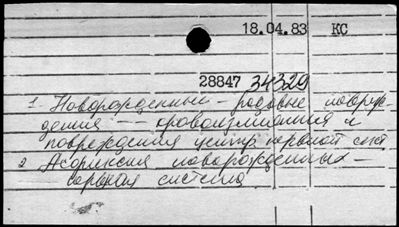 18.04.83 КС
28847 34329
1. Новорожденные – родовые повреж-
дения – кровоизлияния и
повреждения центр. нервной сист.
2 Асфиксия новорожденных –
нервная система